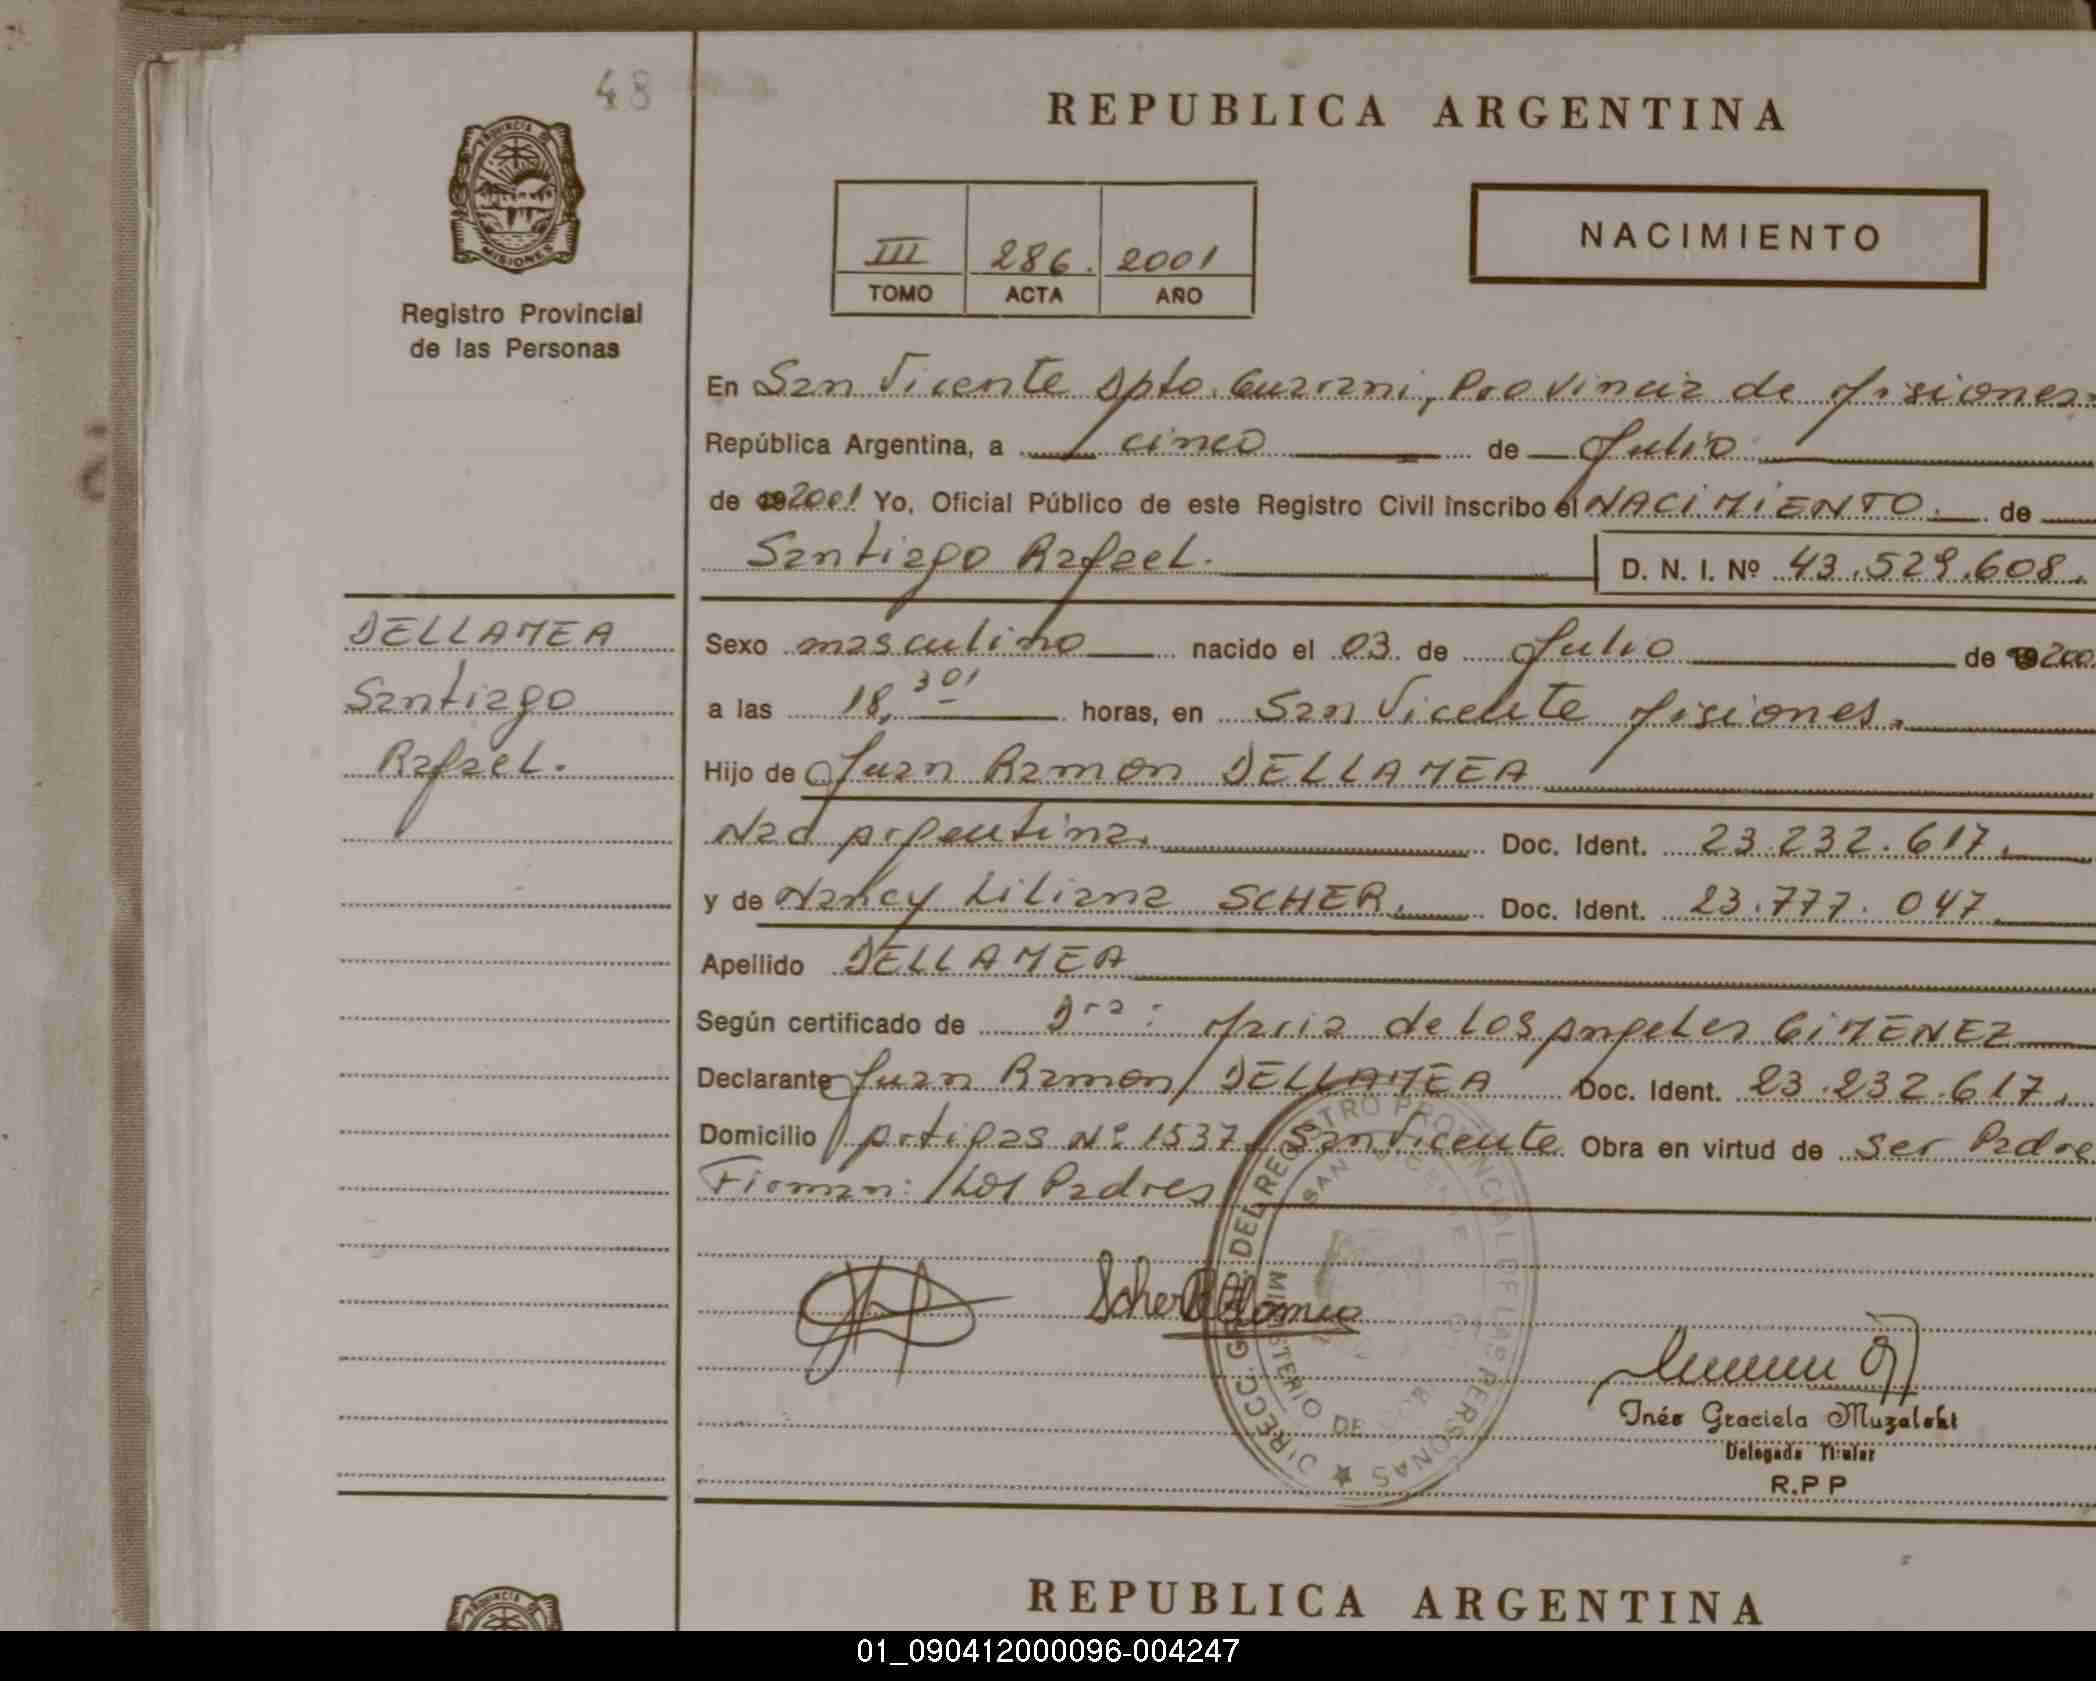 48
REPUBLICA ARGENTINA
PROVINCIA DE
MISIONES
Registro Provincial
de las Personas
III 286. 2001
TOMO ACTA AÑO
NACIMIENTO
En San Vicente Dpto. Guarani, Provincia de Misiones.
República Argentina, a cinco de Julio
de 2001 Yo, Oficial Público de este Registro Civil inscribo el NACIMIENTO. de
Santiago Rafael. D. N. I. Nº 43.529.608.
DELLAMEA
Santiago
Rafael.
Sexo masculino nacido el 03 de Julio de 200
a las 18,30 horas, en San Vicente Misiones.
Hijo de Juan Ramon DELLAMEA
Nac Argentina. Doc. Ident. 23.232.617.
y de Nancy Liliana SCHER. Doc. Ident. 23.777.047
Apellido DELLAMEA
Según certificado de Dra: Maria de Los Angeles GIMENEZ
Declarante Juan Ramon DELLAMEA Doc. Ident. 23.232.617.
Domicilio Artigas Nº 1537 San Vicente Obra en virtud de ser Padre
Firman: Los Padres
DIRECC. GRAL. DEL REGISTRO PROVINCIAL DE LAS PERSONAS
SAN VICENTE
MINISTERIO DE
Scher
Inés Graciela Muzalski
Delegada Titular
R.P P
REPUBLICA ARGENTINA
PROVINCIA DE
01_090412000096-004247